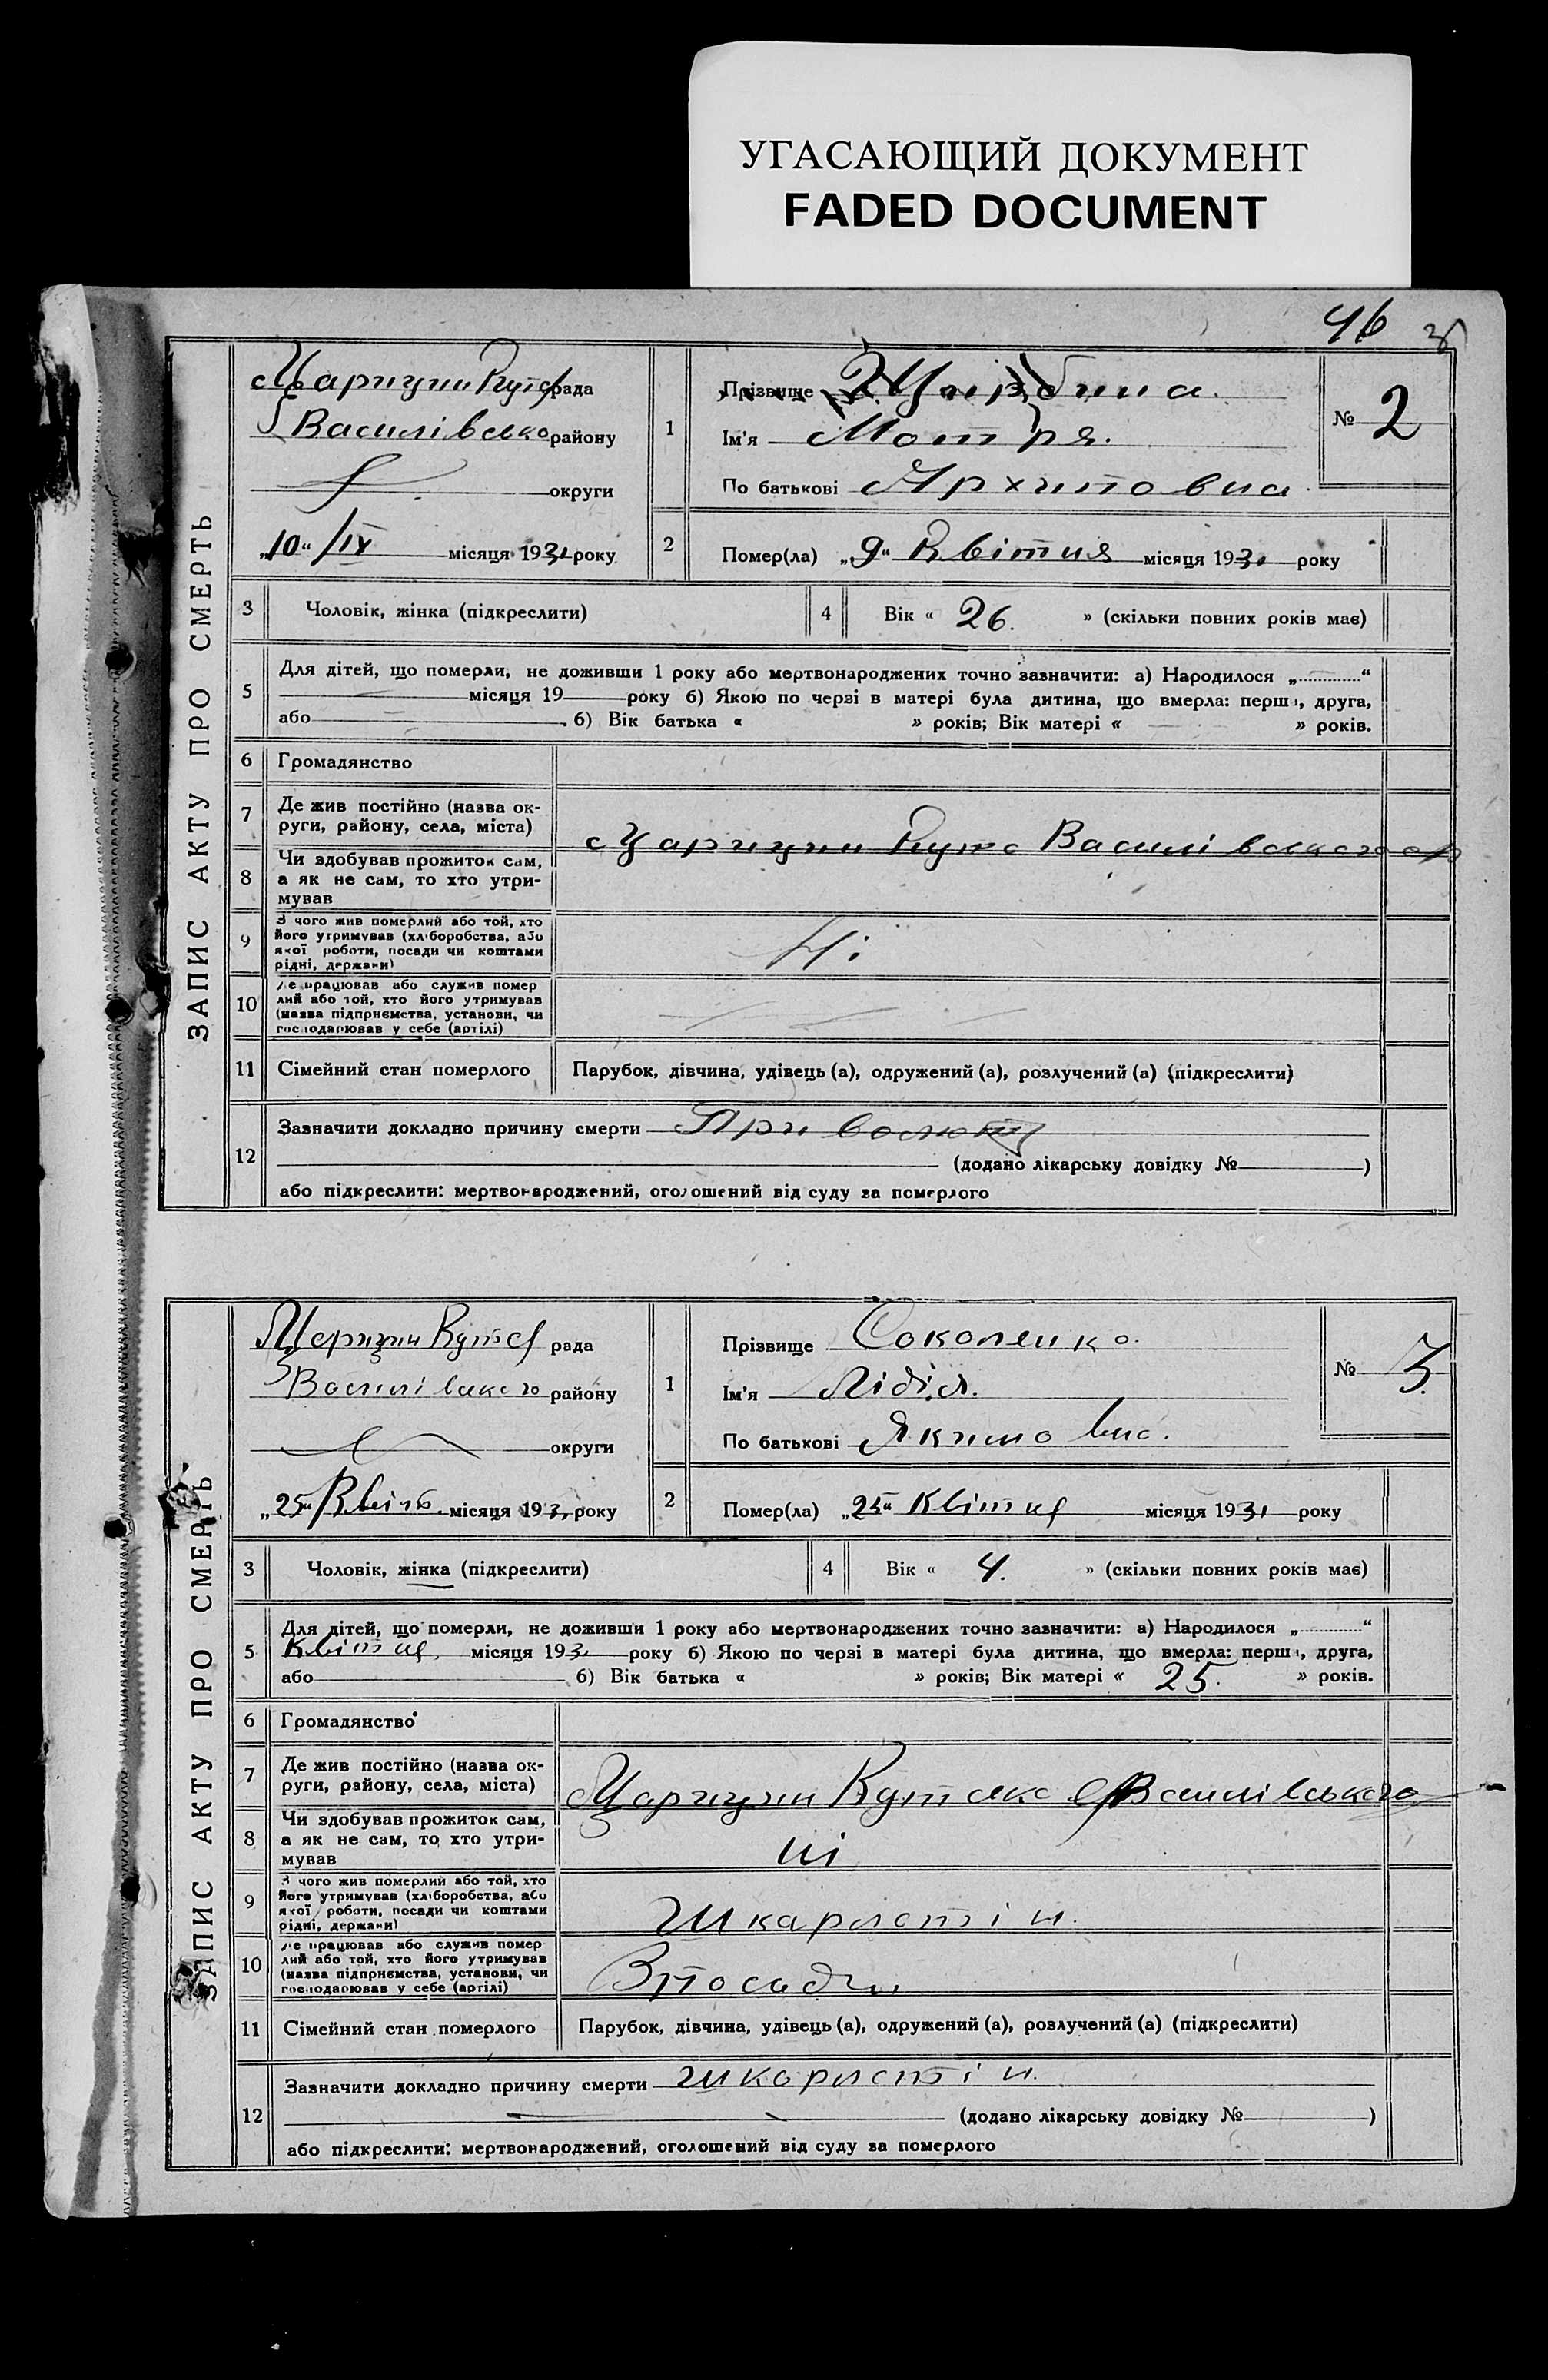 УГАСАЮЩИЙ ДОКУМЕНТ
FADED DOCUMENT
46
ЗАПИС АКТУ ПРО СМЕРТЬ
Царицин Кутс рада
Василівсько району
округи
„10“ /IV місяця 1931 року
1
Прізвище
Ім'я Мотря.
По батькові Архиповна
№ 2
2
Помер(ла) „9“ Квітня місяця 1931 року
3 Чоловік, жінка (підкреслити)
4 Вік « 26. » (скільки повних років має)
5 Для дітей, що померли, не доживши 1 року або мертвонароджених точно зазначити: а) Народилося „ “
місяця 19 року б) Якою по черзі в матері була дитина, що вмерла: перша, друга,
або б) Вік батька « » років; Вік матері « » років.
6 Громадянство
7 Де жив постійно (назва ок-
руги, району, села, міста)
Царицин Кутс Василівського р
8 Чи здобував прожиток сам,
а як не сам, то хто утри-
мував
9 З чого жив померлий або той, хто
його утримував (хліборобства, або
якої роботи, посади чи коштами
рідні, держави)
Ні
10 Де працював або служив помер
лий або той, хто його утримував
(назва підприємства, установи, чи
господарював у себе (артілі)
11 Сімейний стан померлого
Парубок, дівчина, удівець (а), одружений (а), розлучений (а) (підкреслити)
12 Зазначити докладно причину смерти При
(додано лікарську довідку № )
або підкреслити: мертвонароджений, оголошений від суду за померлого
ЗАПИС АКТУ ПРО СМЕРТЬ
Царицин Кутс рада
Василівського району
округи
„25“ Квітн місяця 1931 року
1
Прізвище Соколенко.
Ім'я Лідія.
По батькові Якимовна.
№ 3.
2
Помер(ла) „25“ Квітня місяця 1931 року
3 Чоловік, жінка (підкреслити)
4 Вік « 4. » (скільки повних років має)
5 Для дітей, що померли, не доживши 1 року або мертвонароджених точно зазначити: а) Народилося „ “
Квітня місяця 193 року б) Якою по черзі в матері була дитина, що вмерла: перша, друга,
або б) Вік батька « » років; Вік матері « 25. » років.
6 Громадянство
7 Де жив постійно (назва ок-
руги, району, села, міста)
Царицин Кутська Василівського
8 Чи здобував прожиток сам,
а як не сам, то хто утри-
мував
ні
9 З чого жив померлий або той, хто
його утримував (хліборобства, або
якої роботи, посади чи коштами
рідні, держави)
шкарлотін.
10 Де працював або служив помер
лий або той, хто його утримував
(назва підприємства, установи, чи
господарював у себе (артілі)
11 Сімейний стан померлого
Парубок, дівчина, удівець (а), одружений (а), розлучений (а) (підкреслити)
12 Зазначити докладно причину смерти шкарлотін.
(додано лікарську довідку № )
або підкреслити: мертвонароджений, оголошений від суду за померлого